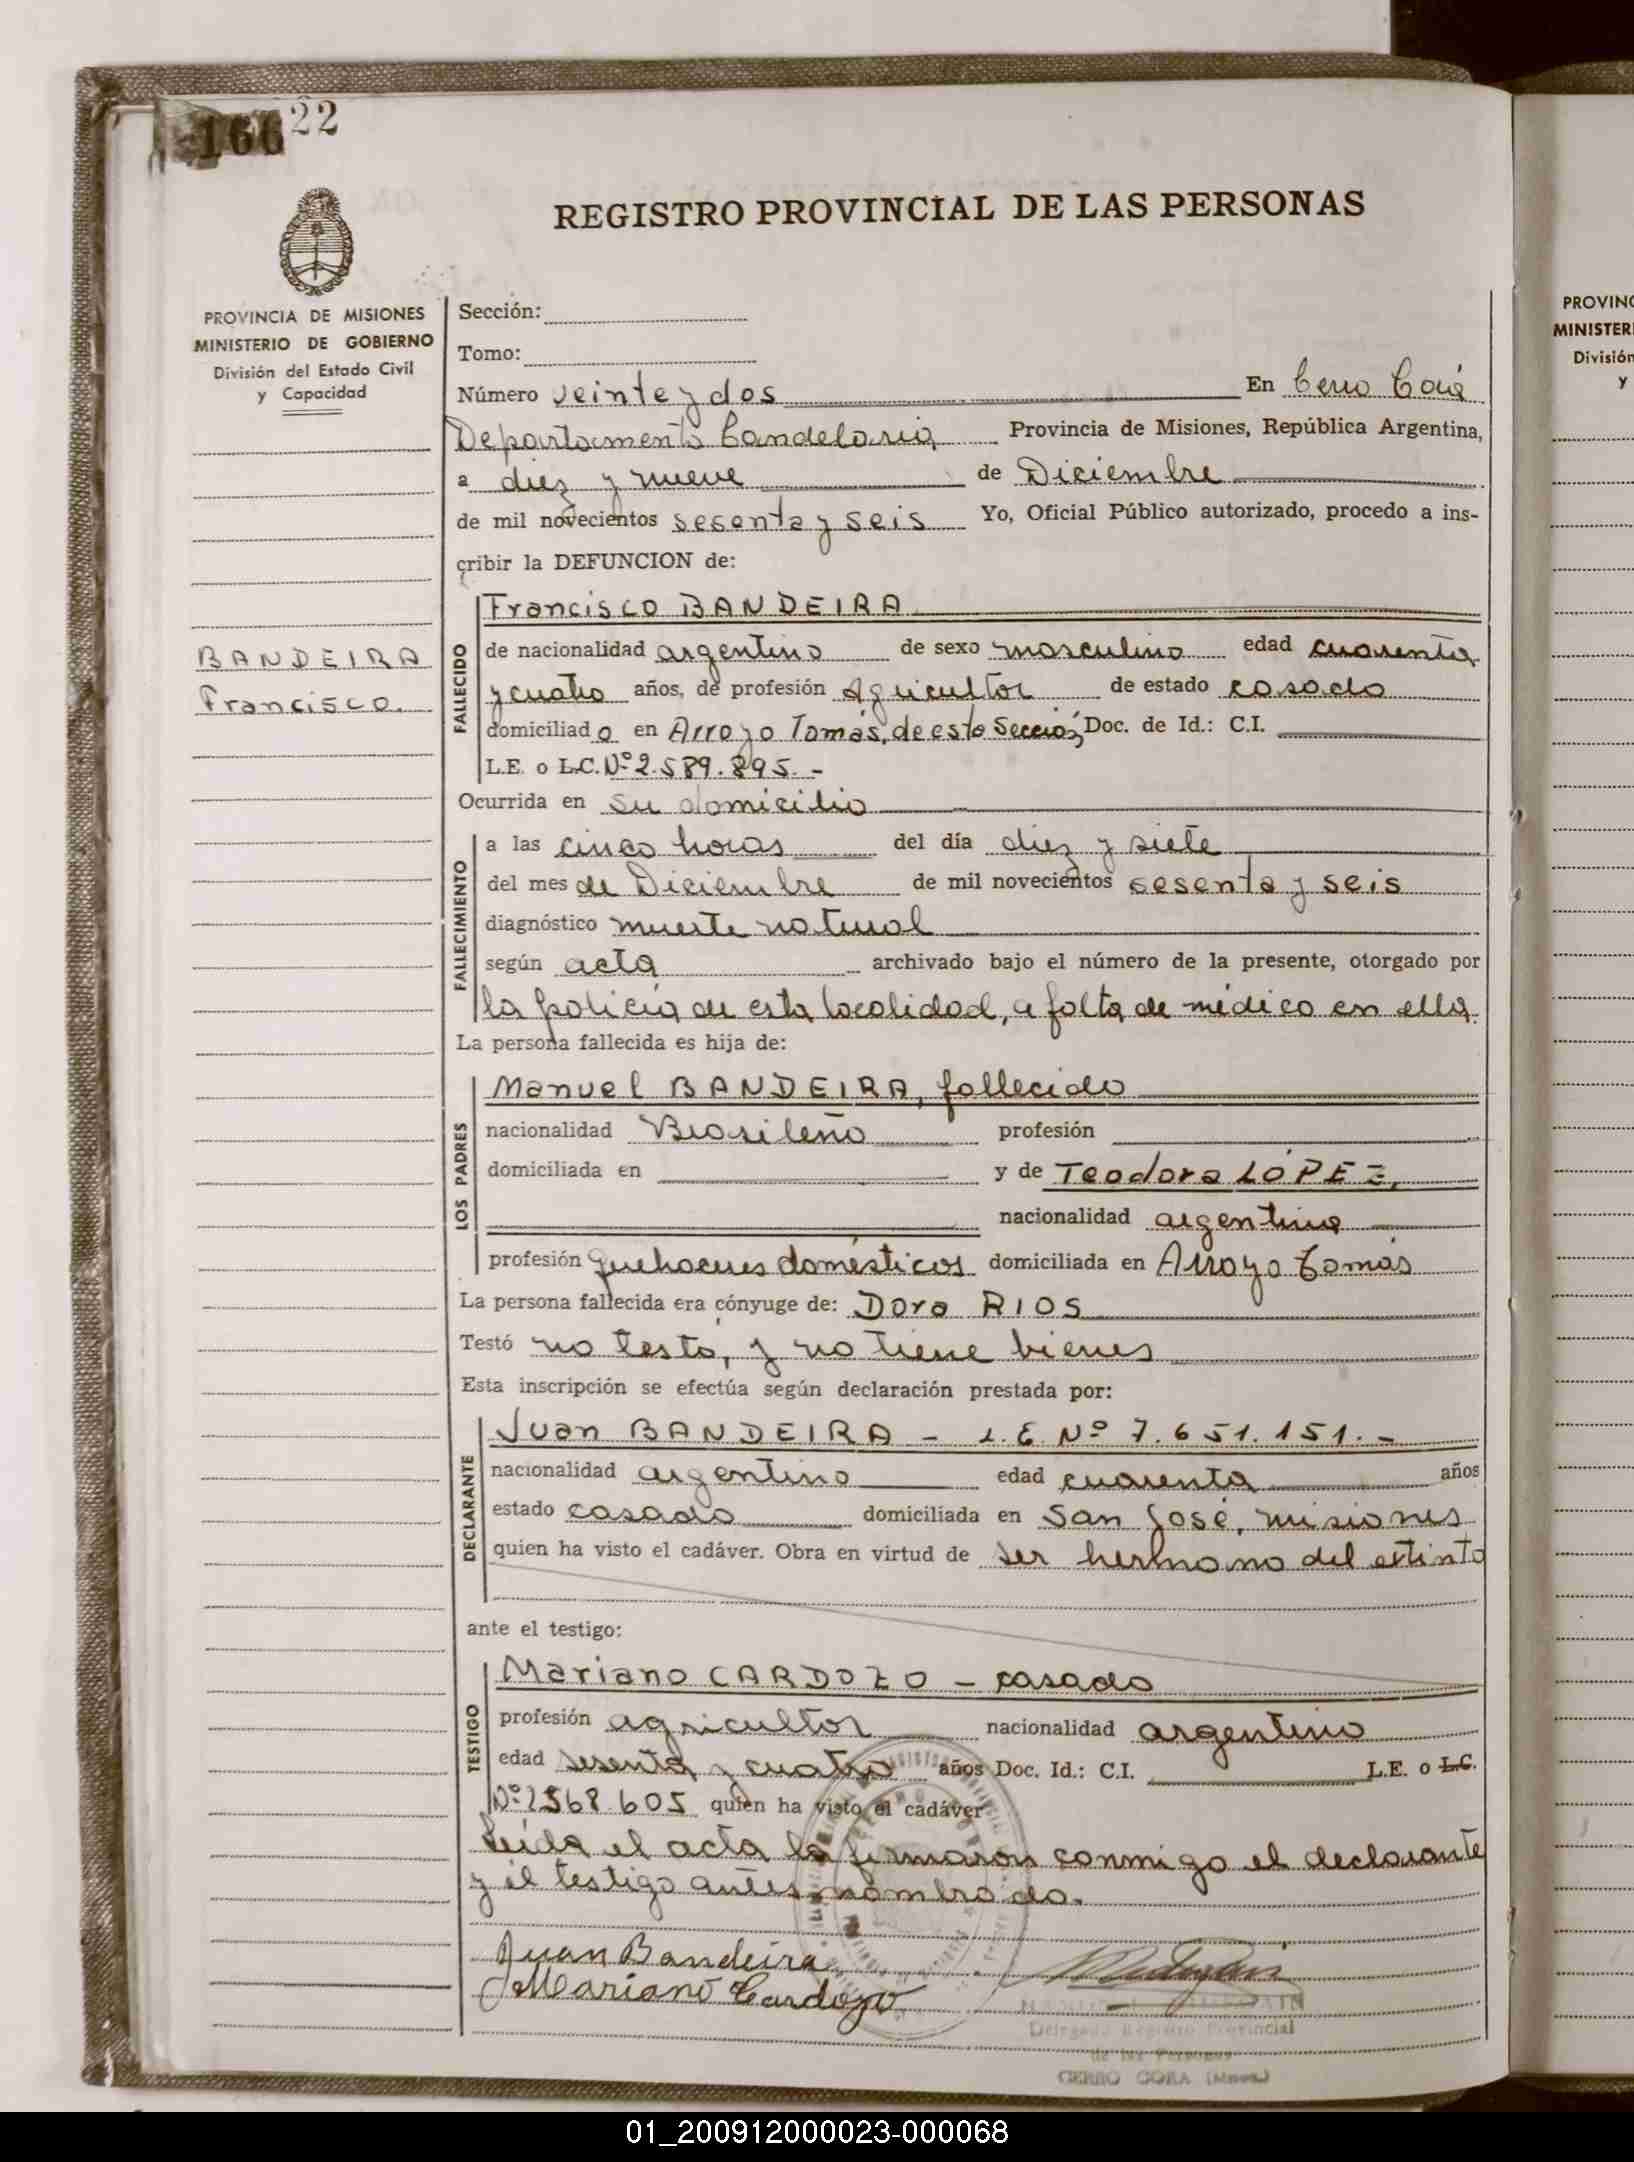 166 22
REGISTRO PROVINCIAL DE LAS PERSONAS
PROVINCIA DE MISIONES
MINISTERIO DE GOBIERNO
División del Estado Civil
y Capacidad
BANDEIRA
Francisco.
Sección:
Tomo:
Número veinte y dos En Cerro Corá
Departamento Candelaria Provincia de Misiones, República Argentina,
a diez y nueve de Diciembre
de mil novecientos sesenta y seis Yo, Oficial Público autorizado, procedo a ins-
cribir la DEFUNCION de:
FALLECIDO
Francisco BANDEIRA
de nacionalidad argentino de sexo masculino edad cuarenta
y cuatro años, de profesión Agricultor de estado casado
domiciliado en Arroyo Tomás, de esta Sección, Doc. de Id.: C.I.
L.E. o L.C. Nº 2.589.895.-
Ocurrida en su domicilio
FALLECIMIENTO
a las cinco horas del día diez y siete
del mes de Diciembre de mil novecientos sesenta y seis
diagnóstico muerte natural
según acta archivado bajo el número de la presente, otorgado por
la policia de esta localidad, a falta de médico en ella.
La persona fallecida es hija de:
LOS PADRES
Manuel BANDEIRA, fallecido
nacionalidad Brasileño profesión
domiciliada en y de Teodora LÓPEZ,
nacionalidad argentina
profesión quehaceres domésticos domiciliada en Arroyo Tomás
La persona fallecida era cónyuge de: Dora RIOS
Testó no testó, y no tiene bienes
Esta inscripción se efectúa según declaración prestada por:
DECLARANTE
Juan BANDEIRA - L.E. Nº 7.651.151.-
nacionalidad argentino edad cuarenta años
estado casado domiciliada en San José, misiones
quien ha visto el cadáver. Obra en virtud de ser hermano del extinto
ante el testigo:
TESTIGO
Mariano CARDOZO - casado
profesión agricultor nacionalidad argentino
edad sesenta y cuatro años Doc. Id.: C.I. L.E. o L.C.
Nº 2568.605 quien ha visto el cadáver
Leída el acta la firmaron conmigo el declarante
y el testigo antes nombrado.
Juan Bandeira
Mariano Cardozo
Delegado Registro Provincial
de las Personas
CERRO CORA (Mnes.)
PROVINC
MINISTERI
División
y
01_200912000023-000068